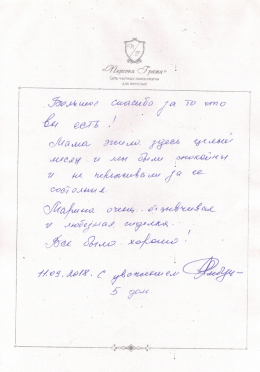 Большое спасибо за то что
вы есть!
Мама жила здесь целый
месяц и мы были спокойны
и не переживали за ее
состояния.
Марина очень отзывчивая
и любезная сиделка.
Все было хорошо!
11.09.2018. С уважением
5 дом